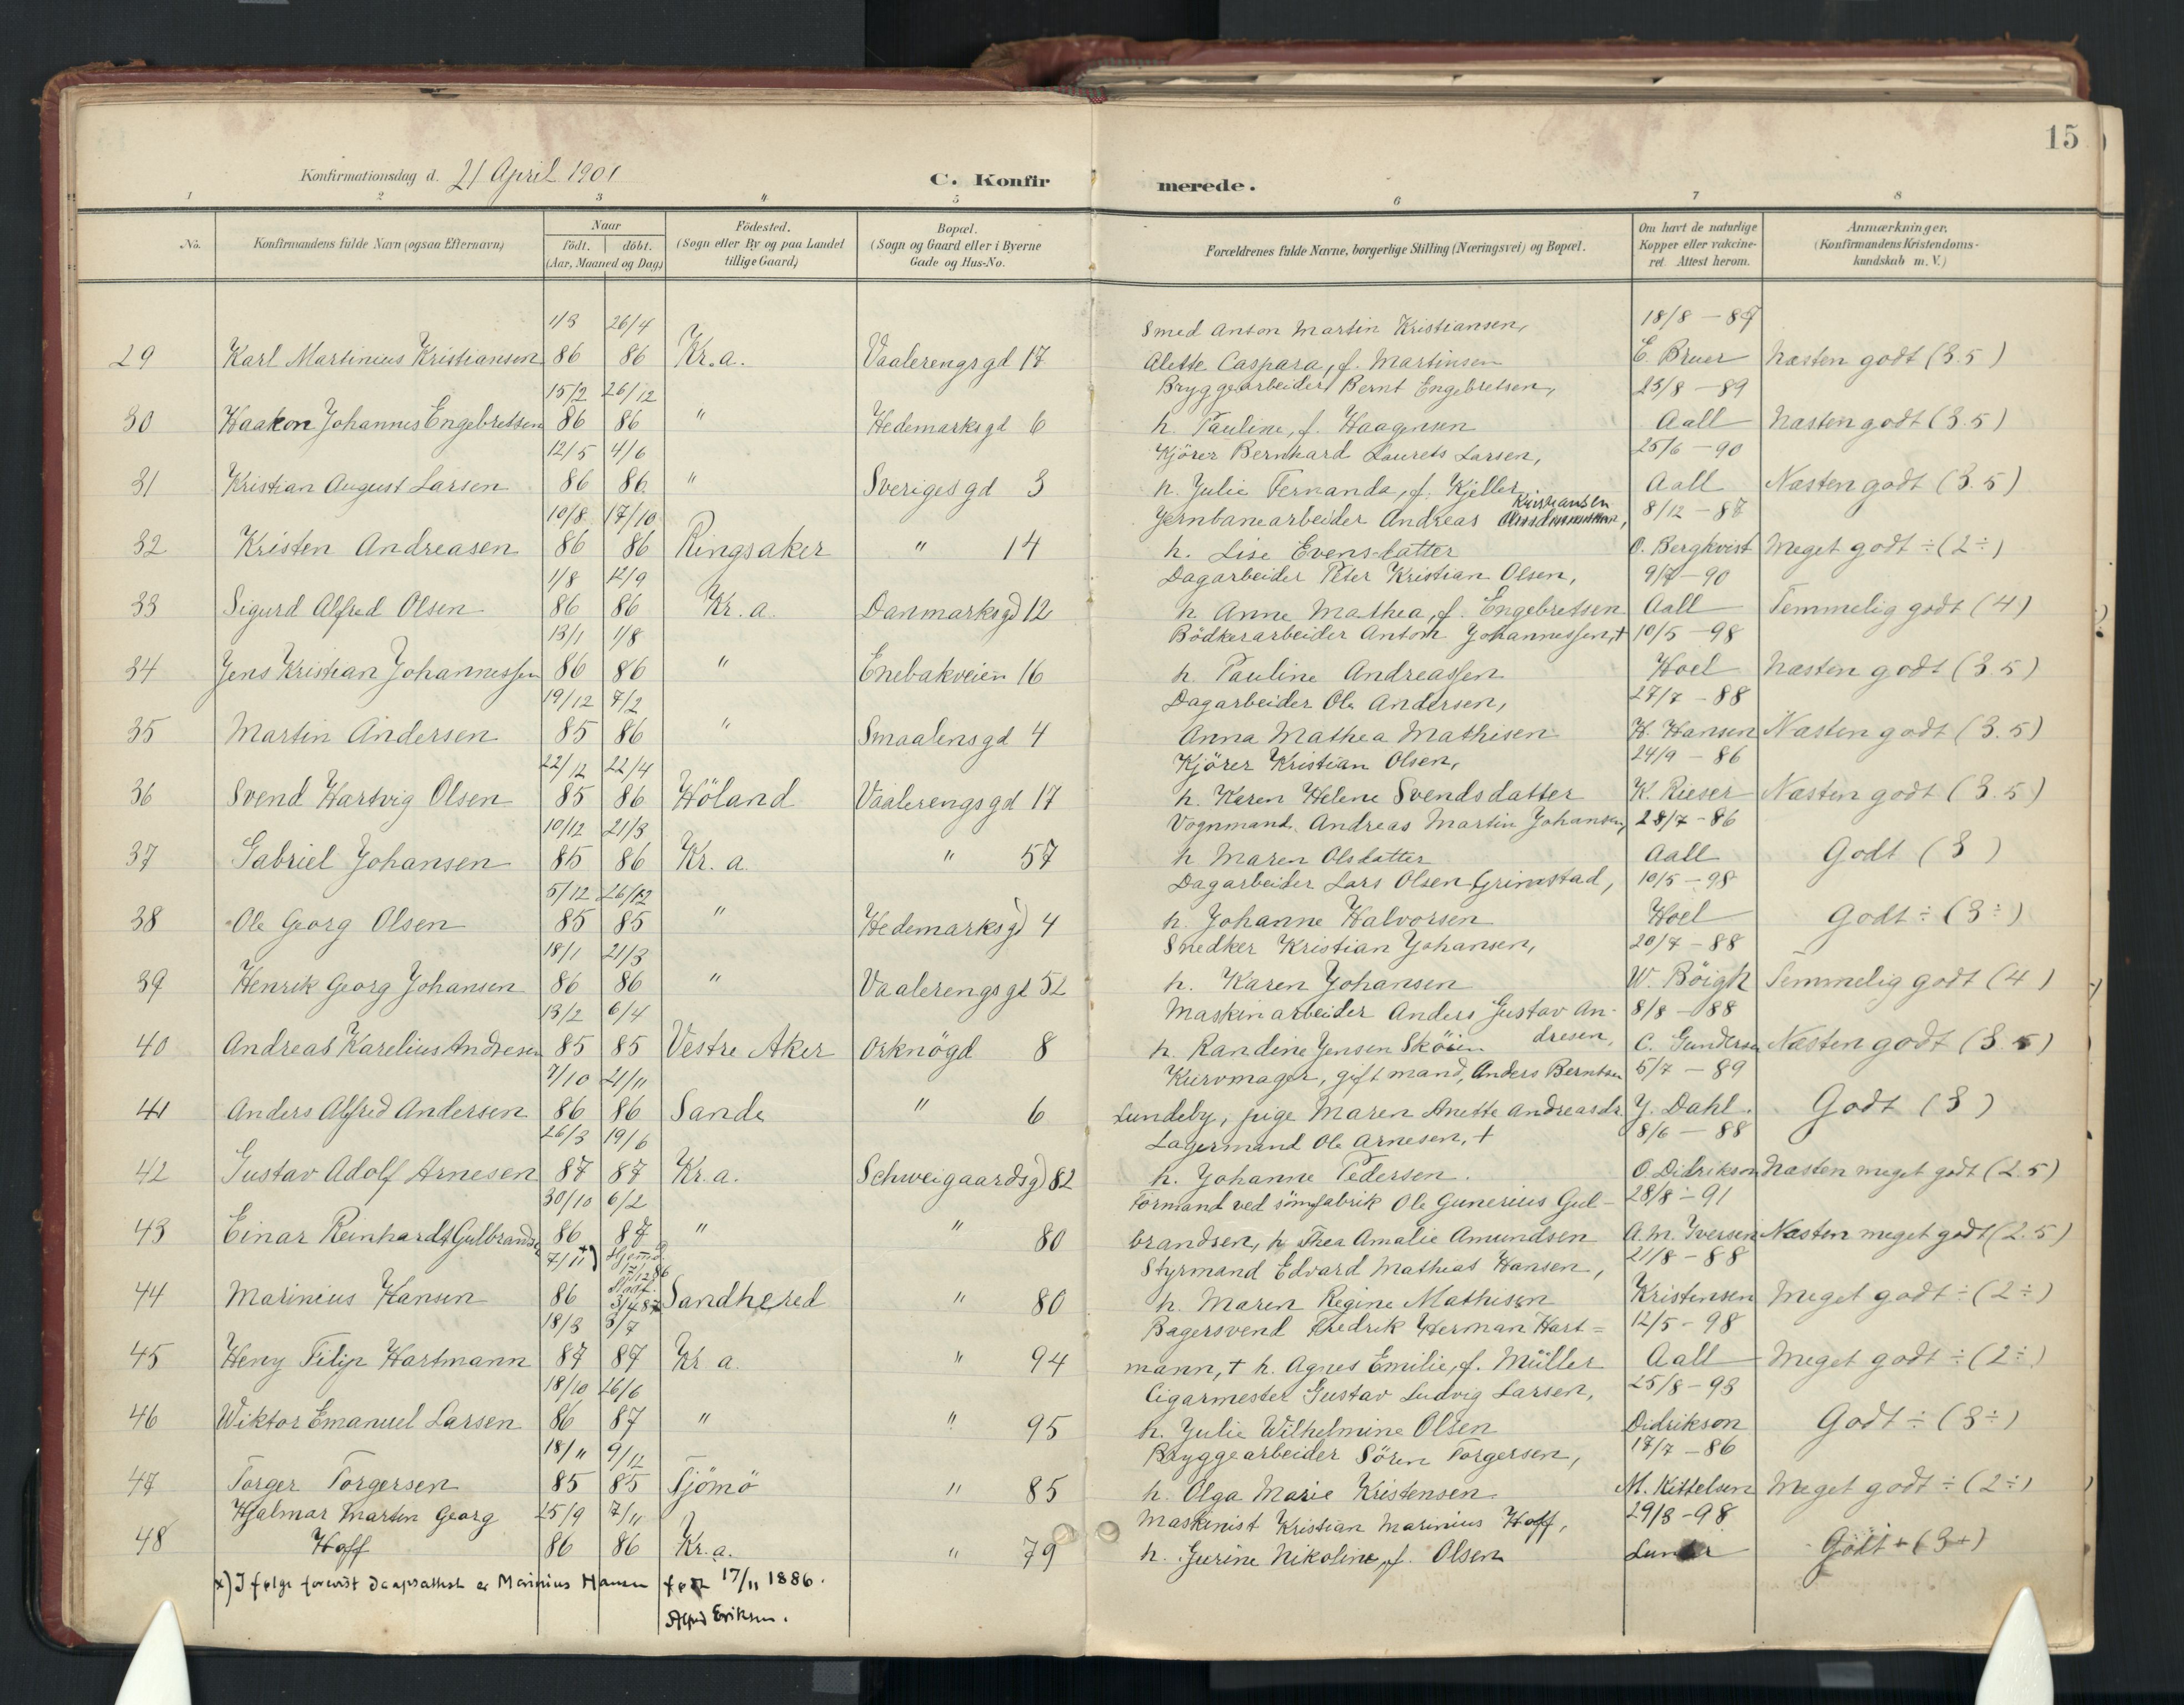 15
Konfirmationsdag d. 21 April 1901
C. Konfirmerede.
1 2 3 4 5 6 7 8
No. Konfirmandens fulde Navn (ogsaa Efternavn) Naar födt. döbt. (Aar, Maaned og Dag) Födested. (Sogn eller By og paa Landet tillige Gaard) Bopæl. (Sogn og Gaard eller i Byerne Gade og Hus-No. Forældrenes fulde Navne, borgerlige Stilling (Næringsvei) og Bopæl. Om havt de naturlige Kopper eller vakcineret Attest herom. Anmærkninger. (Konfirmandens Kristendomskundskab m. V.)
1/3 26/4 Smed Anton Martin Kristiansen, 18/8 - 89
29 Karl Martinius Kristiansen 86 86 Kr.a. Vaalerengsgd 17 Alette Caspara, f. Martinsen E. Bruer Næsten godt (3.5)
15/2 26/12 Bryggearbeider Bernt Engebretsen, 23/8 - 89
30 Haakon Johannes Engebretsen 86 86 " Hedemarksgd 6 h. Pauline, f. Haagensen Aall Næsten godt (3.5)
12/5 4/6 Kjörer Bernhard Laurets Larsen, 25/6 - 90
31 Kristian August Larsen 86 86 " Sveriges gd 3 h. Julie Fernanda, f. Kjeller. Aall Næsten godt (3.5)
10/8 17/10 Jernbanearbeider Andreas Kristiansen, 8/12 - 87
32 Kristen Andreasen 86 86 Ringsaker " 14 h. Lise Evensdatter O. Bergkvist Meget godt ÷ (2÷)
1/8 12/9 Dagarbeider Peter Kristian Olsen, 9/7 - 90
33 Sigurd Alfred Olsen 86 86 Kr.a. Danmarksgd 12 h Anne Mathea, f. Engebretsen Aall Temmelig godt (4)
13/1 1/8 Bödkerarbeider Anton Johannessen, + 10/5 - 98
34 Jens Kristian Johannessen 86 86 " Enebakveien 16 h. Pauline Andreassen Hoel Næsten godt (3.5)
19/12 7/2 Dagarbeider Ole Andersen, 27/7 - 88
35 Martin Andersen 85 86 " Smaalensgd 4 Anna Mathea Mathisen H. Hansen Næsten godt (3.5)
22/12 22/4 Kjörer Kristian Olsen, 24/9 - 86
36 Svend Hartvig Olsen 85 86 Höland Vaalerengsgd 17 h. Karen Helene Svendsdatter K. Rieser Næsten godt (3.5)
10/12 21/3 Vognmand. Andreas Martin Johansen, 28/7 - 86
37 Gabriel Johansen 85 86 Kr.a. " 57 h Maren Olsdatter Aall Godt (3)
5/12 26/12 Dagarbeider Lars Olsen Grimstad, 10/5 - 98
38 Ole Georg Olsen 85 85 " Hedemarksgd 4 h. Johanne Halvorsen Hoel Godt ÷ (3÷)
18/1 21/3 Snedker Kristian Johansen, 20/7 - 88
39 Henrik Georg Johansen 86 86 " Vaalerengsgd 52 h. Karen Johansen W. Böigh Temmelig godt (4)
13/2 6/4 Maskinarbeider Anders Gustav An- 8/8 - 88
dresen,
40 Andreas Karelius Andresen 85 85 Vestre Aker Orknögd 8 h. Randine Jensen Sköien C. Gundersen Næsten godt (3.5)
7/10 21/11 Kurvmager, gift mand, Anders Berntsen 5/7 - 89
41 Anders Alfred Andersen 86 86 Sande " 6 Lundeby, pige Maren Anette Andreasdr. J. Dahl. Godt (3)
26/3 19/6 Lagermand Ole Arnesen, + 8/6 - 88
42 Gustav Adolf Arnesen 87 87 Kr.a. Schweigaardsgd 82 h. Johanne Pedersen. O. Didrikson Næsten meget godt (2.5)
30/10 6/2 Formand ved sömfabrik Ole Gunerius Gul- 28/8 - 91
43 Einar Reinhardt Gulbrandsen 86 87 " " 80 brandsen, h Thea Amalie Amundsen A. M. Iversen Næsten meget godt (2.5)
7/11 x) Hjemmed. 17/12 86 Styrmand Edvard Mathias Hansen, 21/8 - 88
44 Marinius Hansen 86 Stadf. 3/4 87 Sandhered " 80 h. Maren Regine Mathisen Kristensen Meget godt ÷ (2÷)
18/3 3/7 Bagersvend Fredrik Herman Hart= 12/5 - 98
45 Heny Filip Hartmann 87 87 Kr a. " 94 mann, + h. Agnes Emilie, f. Müller Aall Meget godt ÷ (2÷)
18/10 26/6 Cigarmester Gustav Ludvig Larsen, 25/8 - 93
46 Wiktor Emanuel Larsen 86 87 " " 95 h. Julie Wilhelmine Olsen Didrikson Godt ÷ (3÷)
18/11 9/12 Bryggearbeider Sören Torgersen, 17/7 - 86
47 Torger Torgersen 85 85 Tjömö " 85 h. Olga Marie Kristensen. M. Kittelsen Meget godt ÷ (2÷)
Hjalmar Martin Georg 25/9 7/11 Maskinist Kristian Marinius Hoff, 29/3 - 98
48 Hoff 86 86 Kr.a. " 79 h. Gurine Nikoline, f. Olsen Godt + (3+)
x) Ifølge forevist daapsattest er Marinius Hansen født 17/11 1886.
Alfred Eriksen.